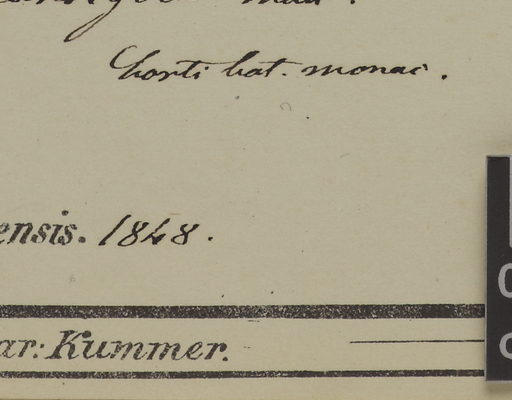 horti bot. monac.
ensis. 1848.
ar: Kummer.